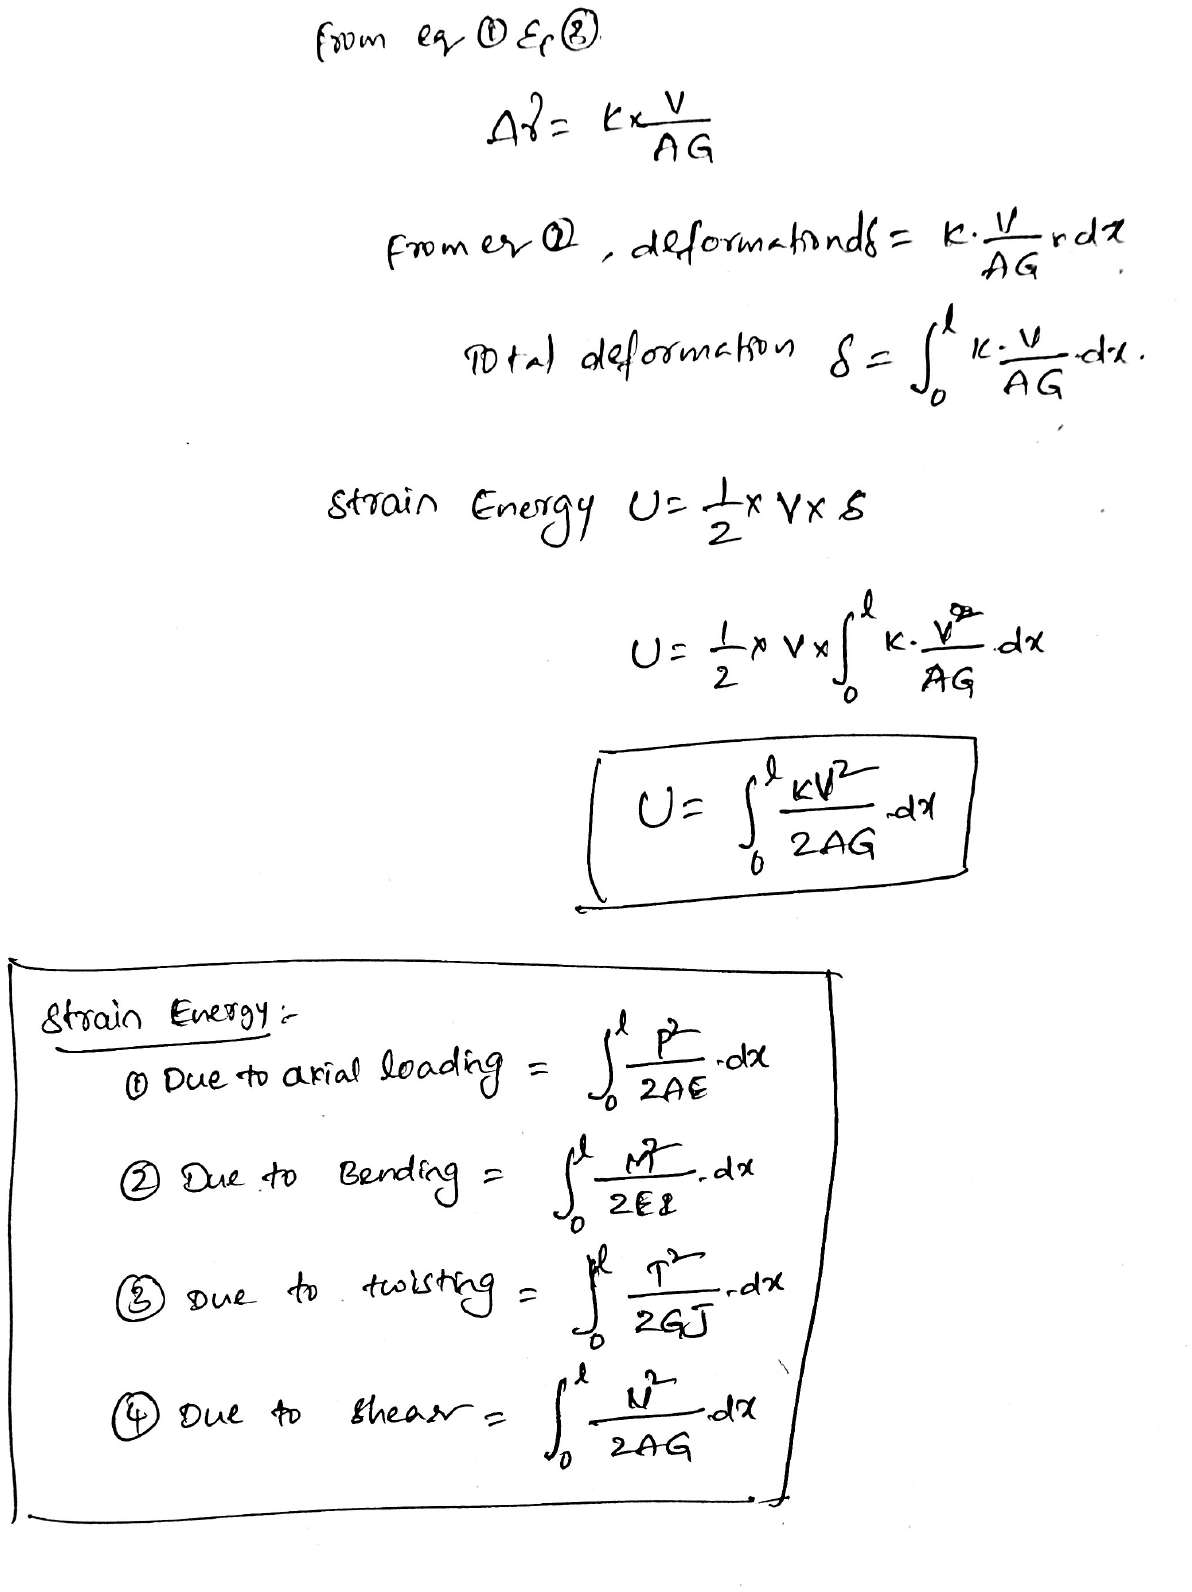 from eq ① & ③.
Δγ = K × V/AG
from eq ②, deformation dδ = K. V/AG × dx
Total deformation δ = ∫₀ˡ K. V/AG .dx.
Strain Energy U = 1/2 × V × δ
U = 1/2 × V × ∫₀ˡ K. V/AG .dx
U = ∫₀ˡ KV²/2AG .dx
Strain Energy :-
① Due to axial loading = ∫₀ˡ P²/2AE .dx
② Due to Bending = ∫₀ˡ M²/2EI .dx
③ Due to twisting = ∫₀ˡ T²/2GJ .dx
④ Due to shear = ∫₀ˡ V²/2AG .dx